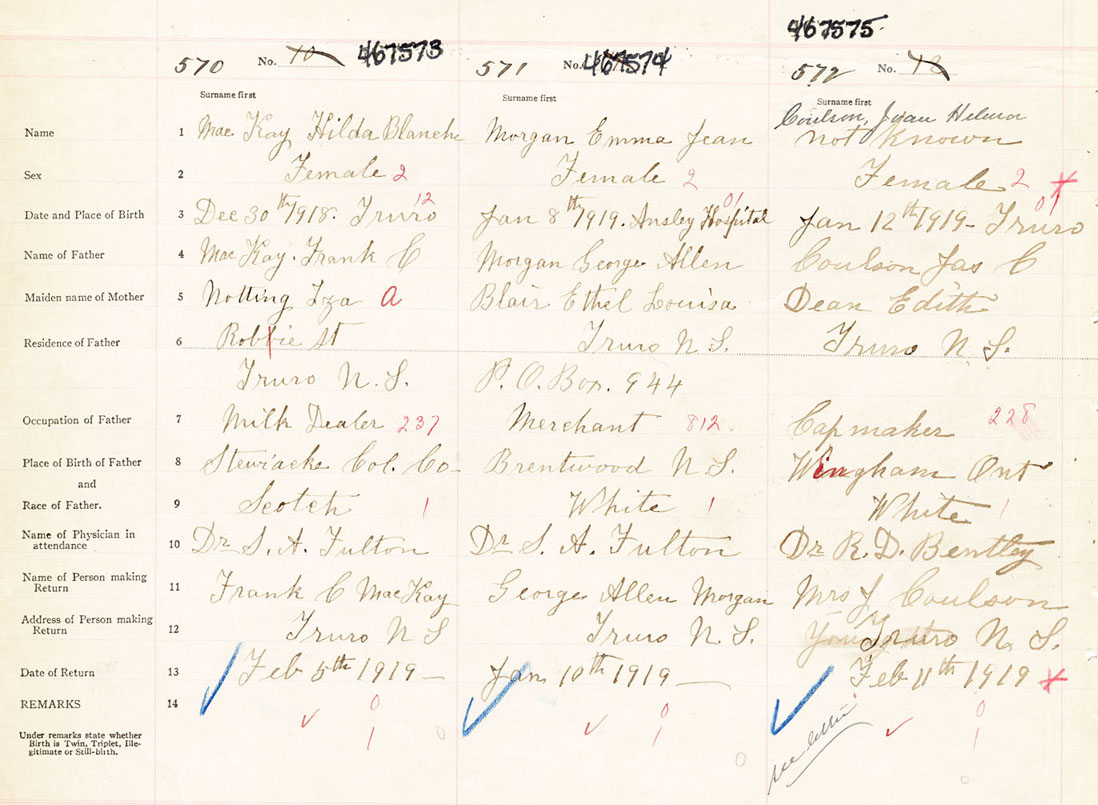 467575
570 No. 10 467573 571 No. 467574 572 No. 12
Surname first Surname first Surname first
Coulson, Joan Helena
Name 1 MacKay Hilda Blanche Morgan Emma Jean not known
Sex 2 Female 2 Female 2 Female 2 x
12 01 01
Date and Place of Birth 3 Dec 30th 1918. Truro Jan 8th 1919. Ansley Hospital Jan 12th 1919 - Truro
Name of Father 4 MacKay. Frank C Morgan George Allen Coulson Jas C
Maiden name of Mother 5 Notting Iza A Blair Ethel Louisa Dean Edith
Residence of Father 6 Robie St Truro N.S. Truro N.S.
Truro N.S. P.O. Box. 944
Occupation of Father 7 Milk Dealer 237 Merchant 812 Cap maker 228
Place of Birth of Father 8 Stewiacke Col. Co Brentwood N.S. Wingham Ont
and
Race of Father. 9 Scotch 1 White 1 White 1
Name of Physician in
attendance 10 Dr S. A. Fulton Dr S. A. Fulton Dr R. D. Bentley
Name of Person making
Return 11 Frank C MacKay George Allen Morgan Mrs J Coulson
Address of Person making
Return 12 Truro N S Truro N.S. Truro N.S.
Date of Return 13 Feb 5th 1919 - Jan 10th 1919 - Feb 11th 1919 x
REMARKS 14 0 0 0
1 1 1
Under remarks state whether
Birth is Twin, Triplet, Ille-
gitimate or Still-birth.
0 0 0
see